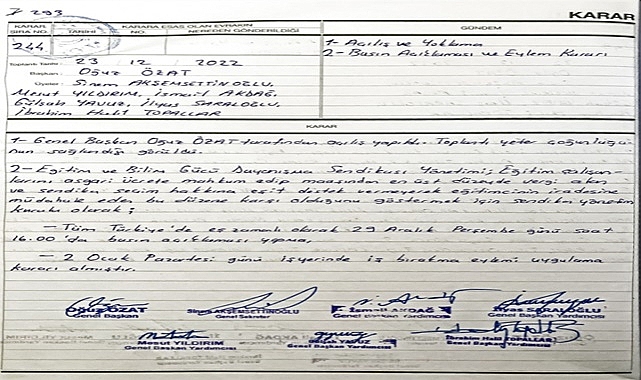 Z 293
KARAR
KARAR SIRA NO.
TARİHİ
KARARA ESAS OLAN EVRAKIN
NO.
NEREDEN GÖNDERİLDİĞİ
GÜNDEM
244
1- Açılış ve Yoklama
2- Basın Açıklaması ve Eylem Kararı
Toplantı Tarihi : 23 / 12 / 2022
Başkan : Oğuz ÖZAT
Üyeler : Sinem AKŞEMSETTİNOĞLU,
Mesut YILDIRIM, İsmail AKDAĞ,
Gülşah YAVUZ, İlyas SARALOĞLU,
İbrahim Halil TOPALLAR
KARAR
1- Genel Başkan Oğuz ÖZAT tarafından açılış yapıldı. Toplantı yeter çoğunluğu-
nun sağlandığı görüldü.
2- Eğitim ve Bilim Gücü Dayanışma Sendikası Yönetimi; Eğitim çalışan-
larını asgari ücrete mahkum edip maaşından en üst düzeyde vergi alan
ve sendika seçim hakkına eşit destek vermeyerek eğitimcinin iradesine
müdahale eden bu düzene karşı olduğunu göstermek için sendika yönetim
kurulu olarak;
- Tüm Türkiye'de eş zamanlı olarak 29 Aralık Perşembe günü saat
16:00'da basın açıklaması yapma,
- 2 Ocak Pazartesi günü işyerinde iş bırakma eylemi uygulama
kararı almıştır.
Oğuz ÖZAT
Genel Başkan
Sinem AKŞEMSETTİNOĞLU
Genel Sekreter
İsmail AKDAĞ
Genel Başkan Yardımcısı
İlyas SARALOĞLU
Genel Başkan Yardımcısı
Mesut YILDIRIM
Genel Başkan Yardımcısı
Gülşah YAVUZ
Genel Başkan Yardımcısı
İbrahim Halil TOPALLAR
Genel Başkan Yardımcısı